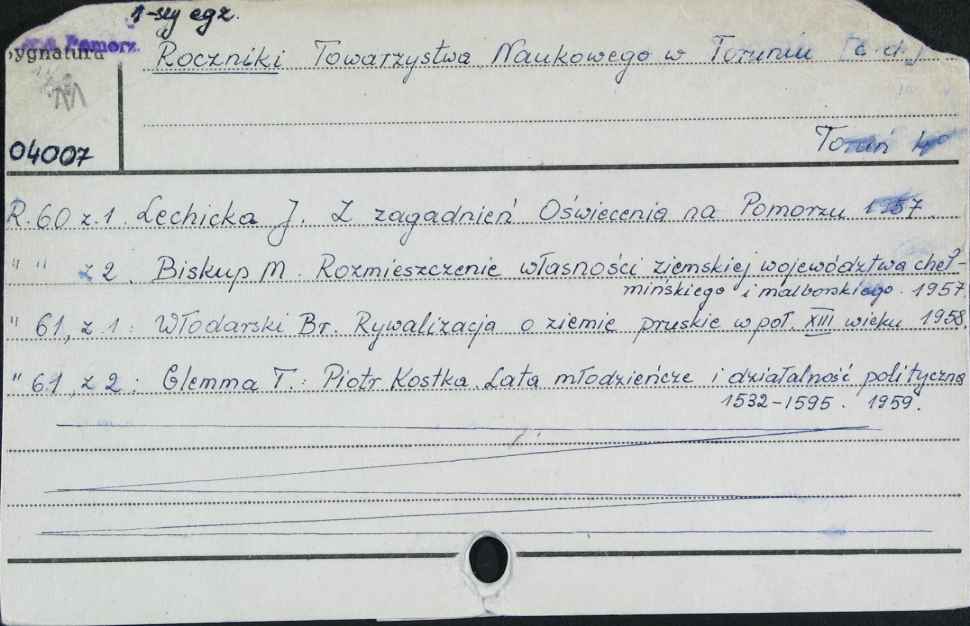 1-szy egz.
Pomorz.
Sygnatura
Roczniki Towarzystwa Naukowego w Toruniu
04007
Toruń 4°
R. 60 z. 1. Lechicka J. Z zagadnień Oświecenia na Pomorzu 1957.
" " z 2. Biskup M. Rozmieszczenie własności ziemskiej województwa cheł-
mińskiego i malborskiego. 1957.
" 61, z. 1: Włodarski Br. Rywalizacja o ziemię pruskie w poł. XIII wieku 1958.
" 61, z 2: Glemma T.: Piotr Kostka. Lata młodzieńcze i działalność polityczna
1532-1595. 1959.